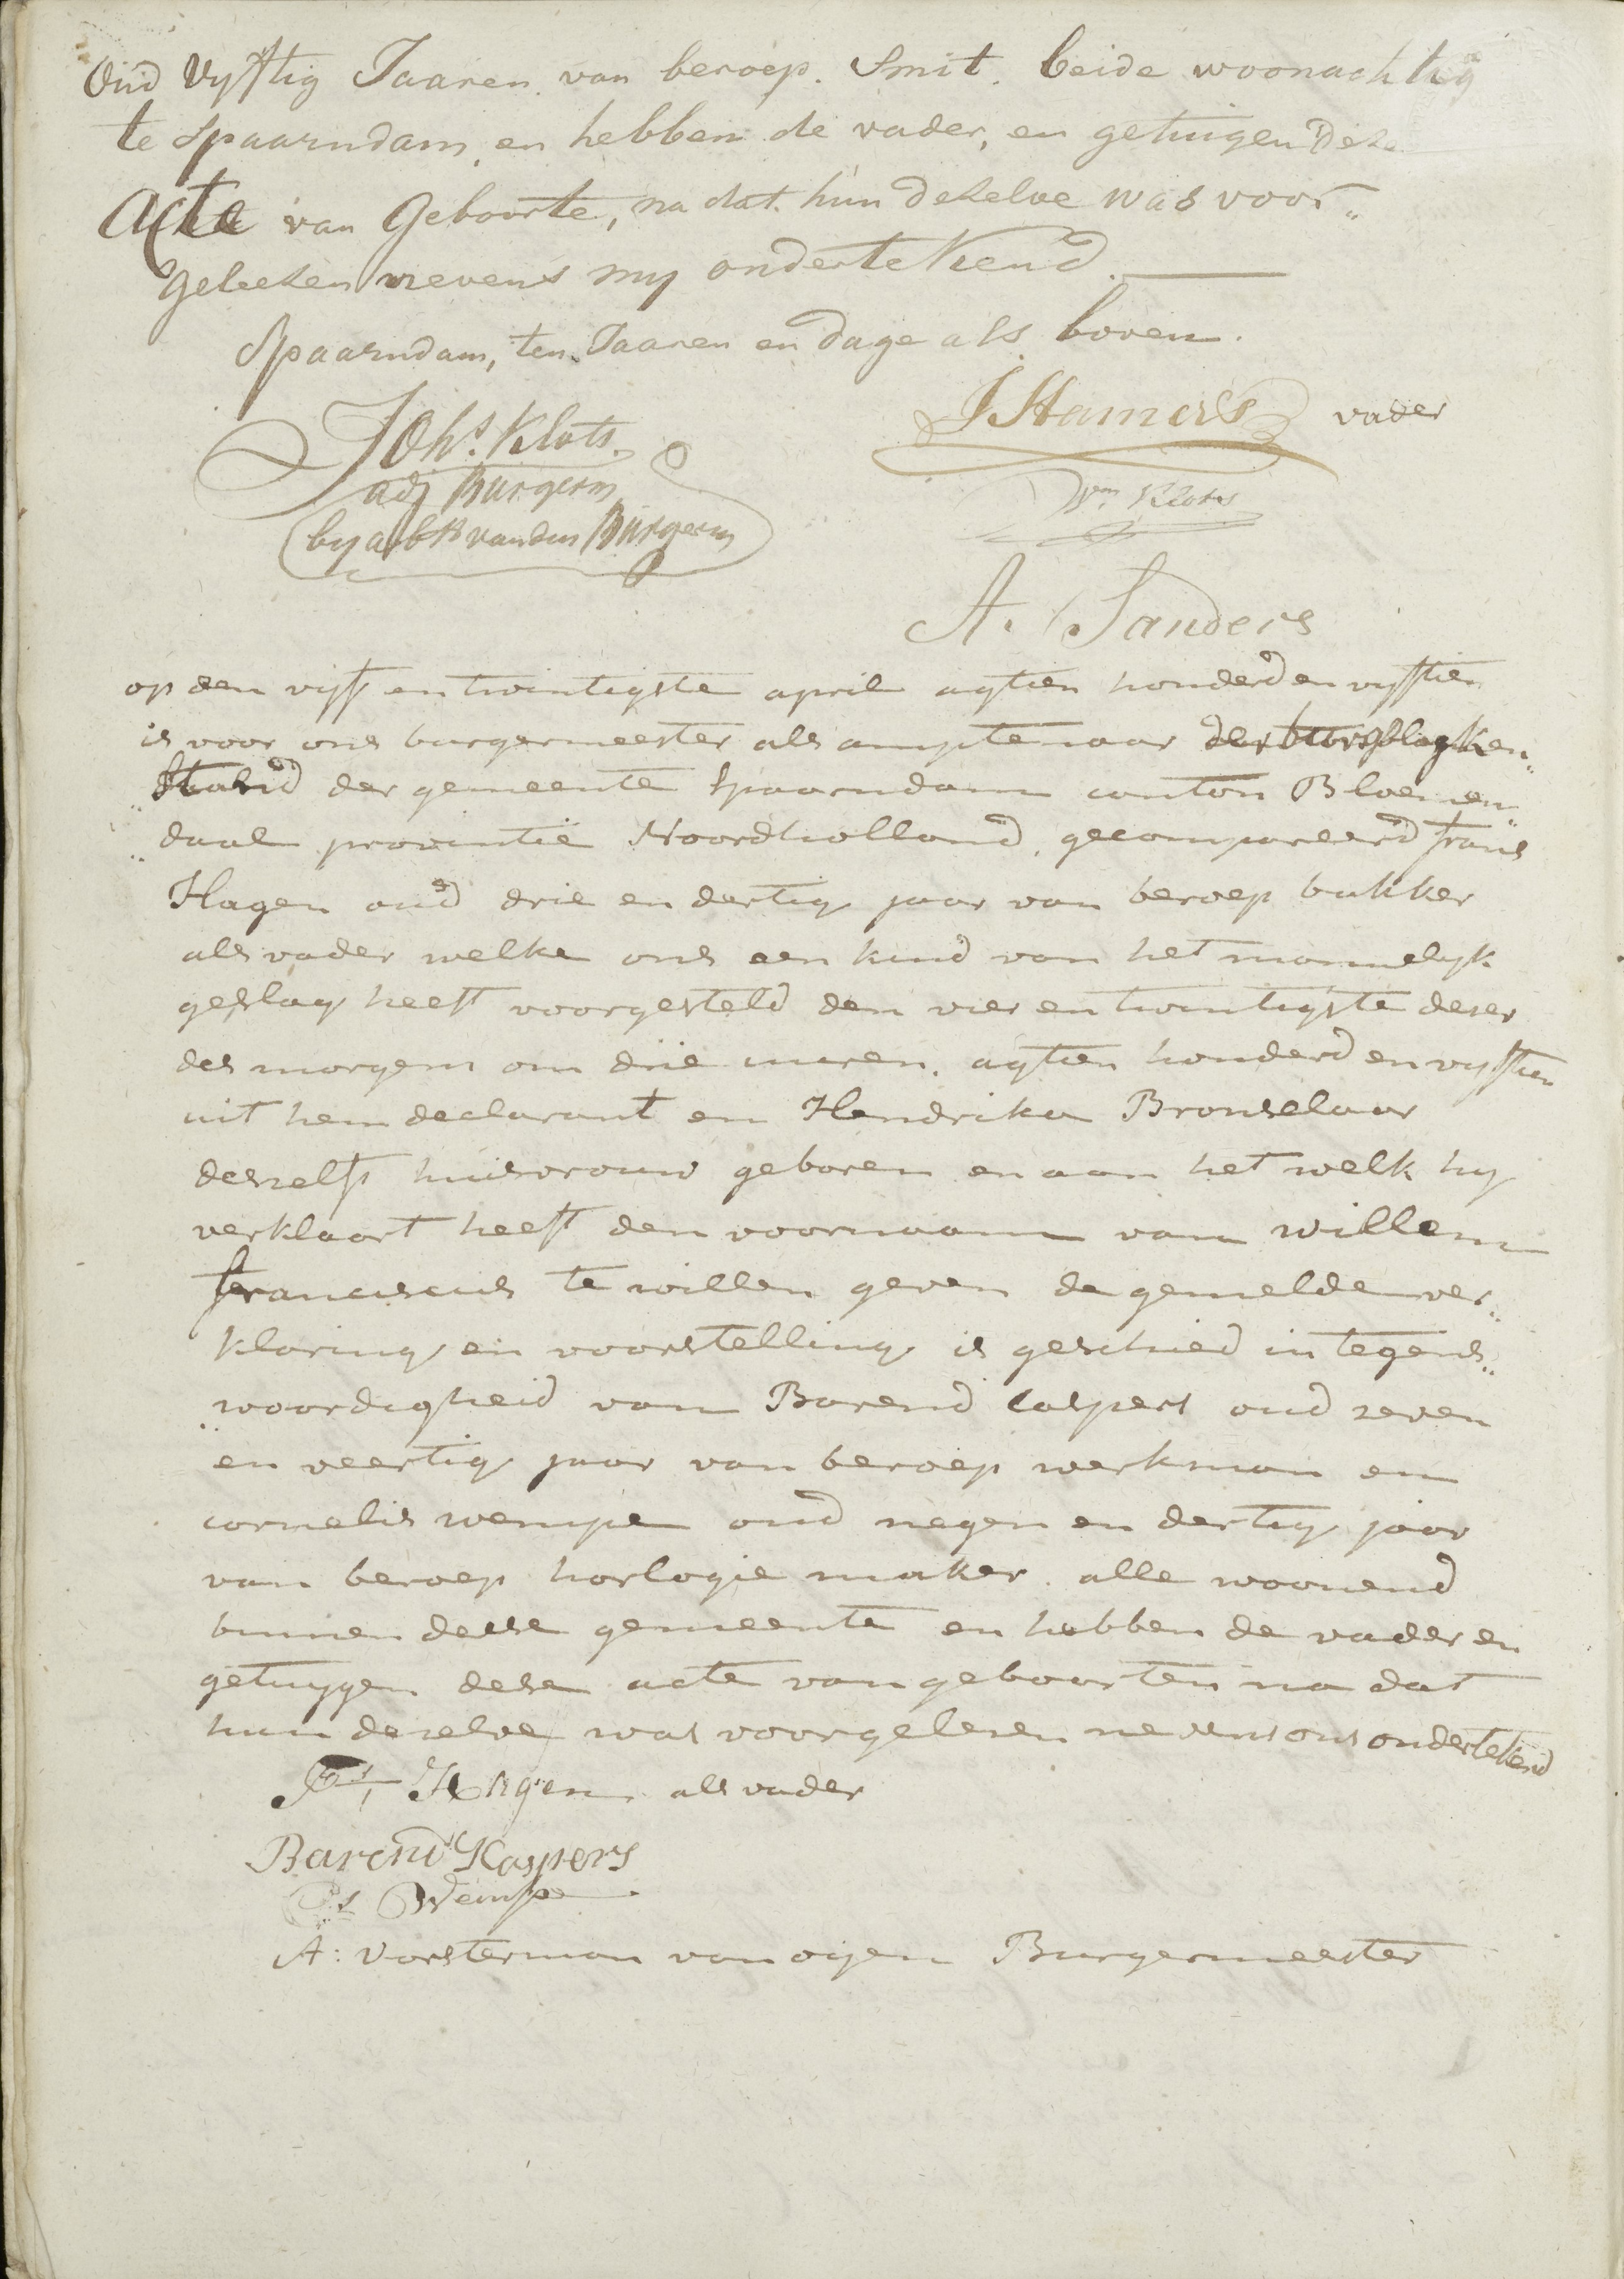 Oud Vyftig Jaaren van beroep. Smit. beide woonachtig
te Spaarndam, en hebben de vader, en getuigen Deze
Acte van Geboorte, na dat hun dezelve was voor„
Geleezen nevens my ondertekend.
Spaarndam, ten Jaaren en dage als boven.
Johs. Klots. J Hamers vader
adj Burgerm Wm. Klots
by abs van den Burgerm
A. Sanders
op den vyff en twintigste april agtien honderd en vyftien
is voor ons burgermeester als amptenaar der burgelyken„
„stand der gemeente Spaarndam canton Bloemen„
„daal provintie Noordholland, gecompareerd frans
Hagen oud drie en dertig jaar van beroep bakker
als vader welke ons een kind van het mannelyk
geslag heeft voorgesteld den vier en twintigste deser
des morgens om drie uuren. agtien honderd en vyftien
uit hem declarant en Hendrika Bronselaar
deszelfs huisvrouw geboren en aan het welk hy
verklaart heeft den voornaam van willem
franciscus te willen geven de gemelde ver„
klaring en voorstelling is geschied in tegens„
„woordigheid van Barend Caspers oud zeven
en veertig jaar van beroep werkman en
cornelis wempe oud negen en dertig jaar
van beroep horlogie maker. alle woonend
binnen deese gemeente en hebben de vader en
getuygen dese acte van geboorten na dat
hun dezelve was voorgelesen nevens ons ondertekend
Fs, Hagen als vader
Barend Kaspers
Cs Wempe
A: Vorsterman van oijen Burgermeester